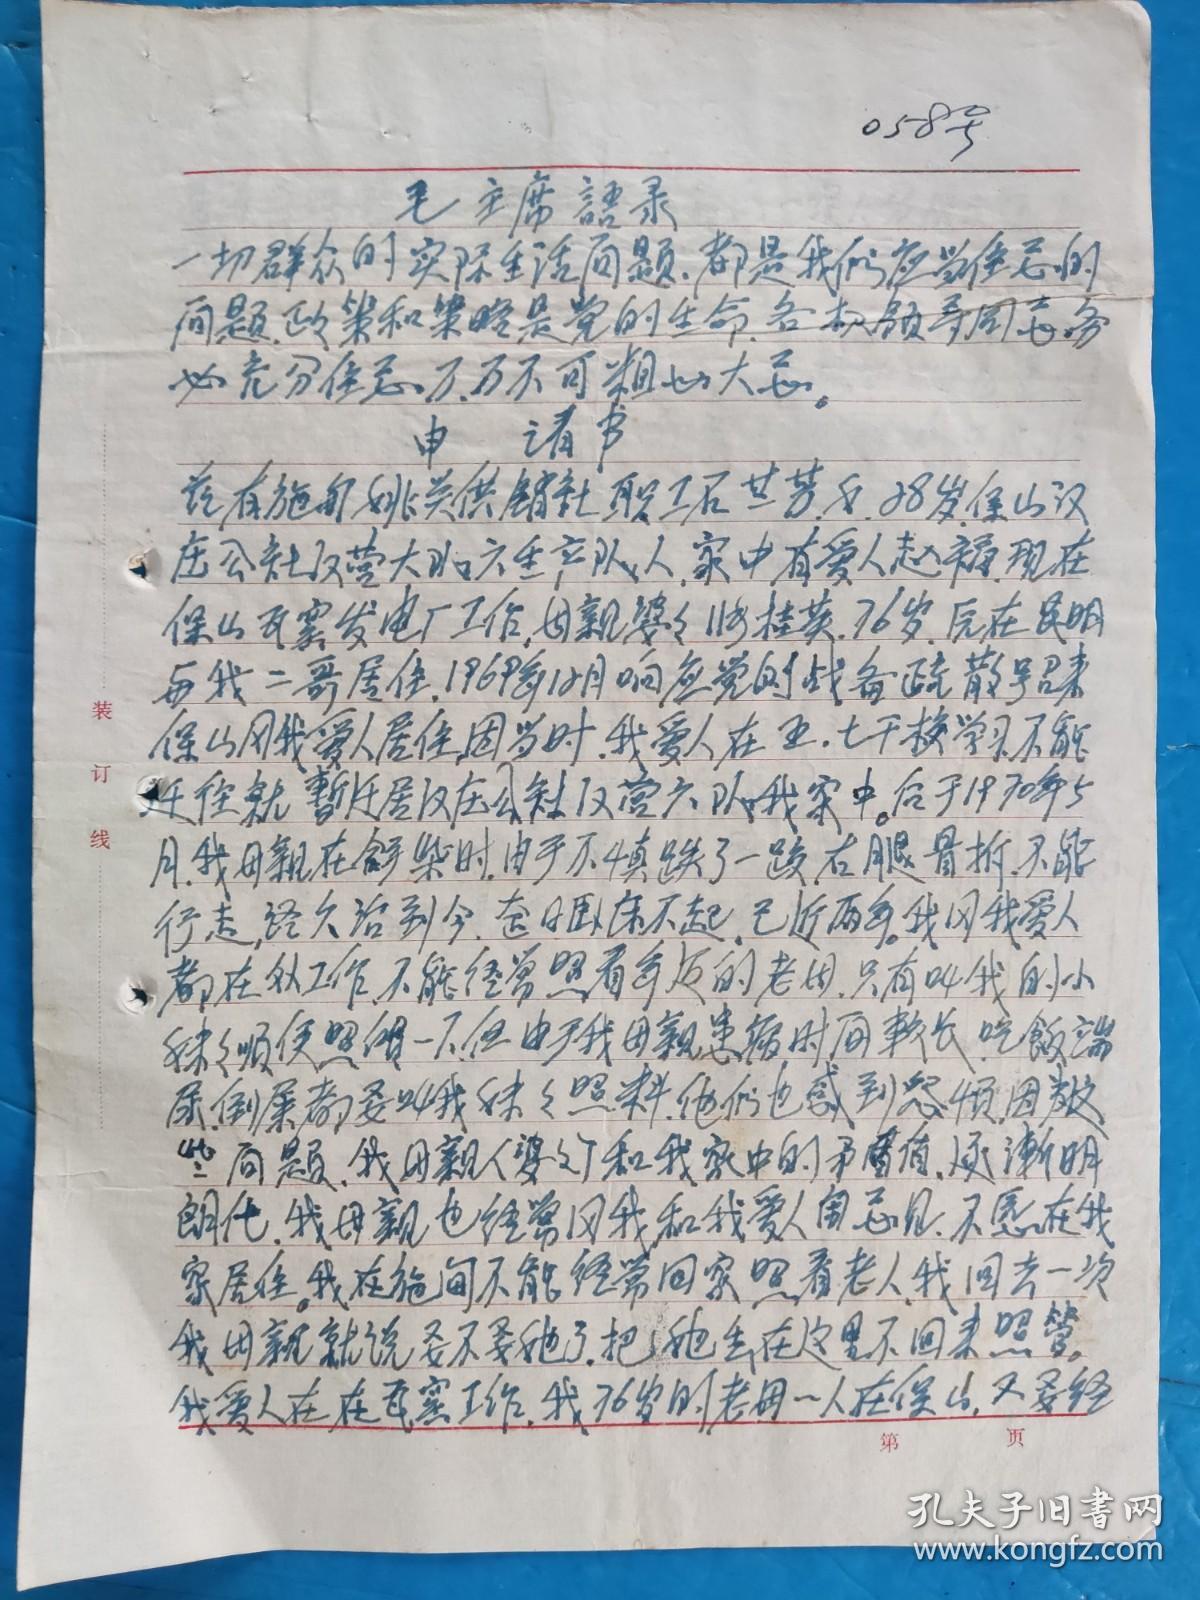 058号
毛主席語录
一切群众的实际生活问题、都是我们应当注意的
问题、政策和策略是党的生命、各级领导同志务
必充分注意、万万不可粗心大意。
申请书
兹有施甸姚关供销社职工石兰芳、女、28岁、保山汉
庄公社汉营大队六生产队人、家中有爱人赵 现在
保山瓦窑发电厂工作、母亲婆々 桂英、76岁、原在昆明
与我二哥居住、1969年12月响应党的战备疏散号召来
保山同我爱人居住、因当时、我爱人在五.七干校学习、不能
迁往就暂迁居汉庄公社汉营六队我家中。后于1970年5
月、我母亲在 柴时、由于不慎跌了一跤、右腿骨折、不能
行走、经久治到今、在日卧床不起、已近两年。我同我爱人
都在外工作、不能经常照看年迈的老母、只有叫我的小
妹々顺便照 一下、但由于我母亲患病时间较长、吃飯端
尿、倒屎都要叫我妹々照料、他们也感到怨烦、因
些问题、我母亲(婆々)和我家中的矛盾 、逐漸明
朗化、我母亲也经常同我和我爱人闹意见、不愿在我
家居住。我在施甸不能经常回家照看老人、我回去一次
我母亲就说要不要她了、把她丢在这里不回来照管。
我爱人在在瓦窑工作、我76岁的老母一人在保山、又要经
装
订
线
第 页
孔夫子旧书网
www.kongfz.com